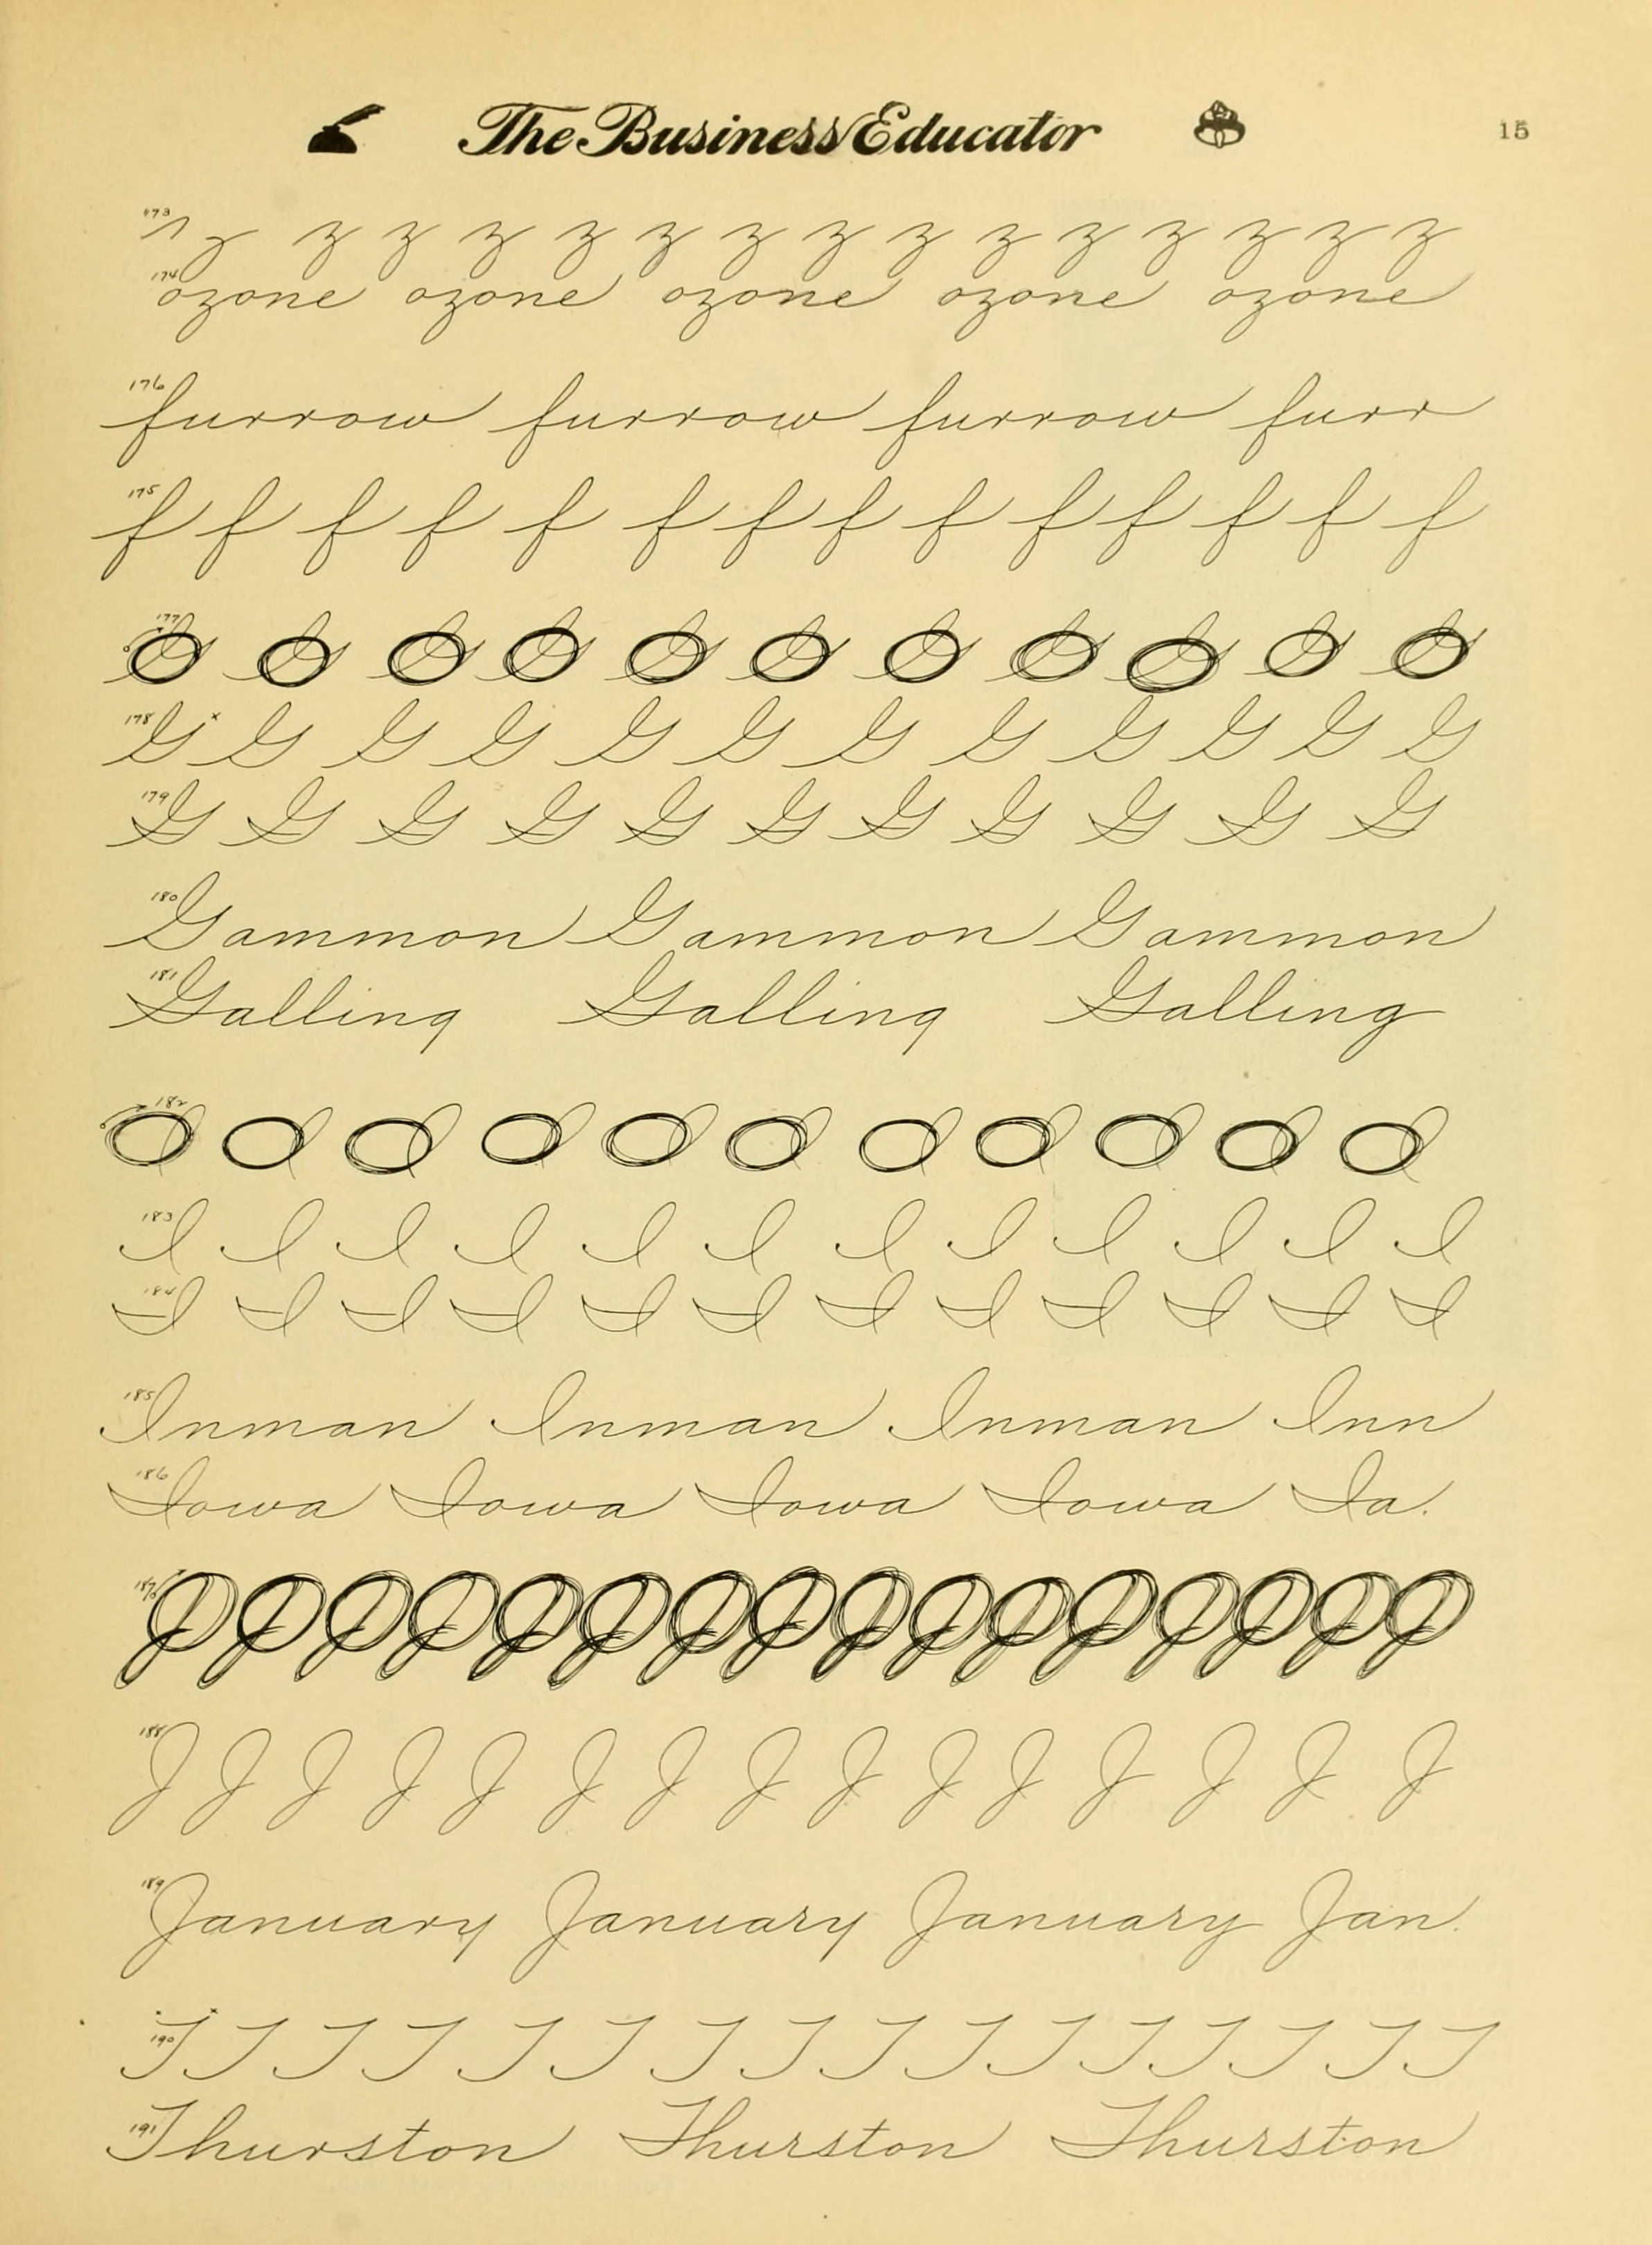 The Business Educator 15
173 z z z z z z z z z z z z z z z
174 ozone ozone ozone ozone ozone
176 furrow furrow furrow furr
175 f f f f f f f f f f f f f f
177
178 G G G G G G G G G G G G
179 G G G G G G G G G G G
180 Gammon Gammon Gammon
181 Galling Galling Galling
182
183 I I I I I I I I I I I I
184 I I I I I I I I I I I I
185 Inman Inman Inman Inn
186 Iowa Iowa Iowa Iowa Ia.
187 J J J J J J J J J J J J J J J J
188 J J J J J J J J J J J J J J J
189 January January January Jan.
190 T T T T T T T T T T T T T T T T
191 Thurston Thurston Thurston